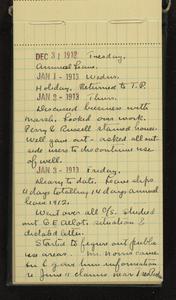 DEC 31 1912 Tuesday.
Annual Leave.
JAN 1 - 1913 Wednes.
Holiday. Returned to T.P.
JAN 2 - 1913 Thurs.
Discussed business with
Marsh. Looked over work.
Perry & Russell stained house.
Well gave out - asked all out-
side users to discontinue use
of well.
JAN 3 - 1913 Friday.
Diary to date.
4 days totalling 14 days annual
leave 1912.
Went over all studied
out situation &
dictated letter.
Started to figure out public
use areas. Mr. Morris came
in & gave him information
re June 11 claims near